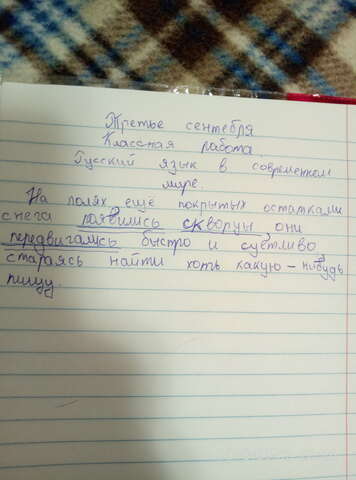 Третье сентября
Классная работа.
Русский язык в современном
мире.
На полях ещё покрытых остатками
снега появились скворцы, они
передвигались быстро и суетливо
стараясь найти хоть какую-нибудь
пищу.